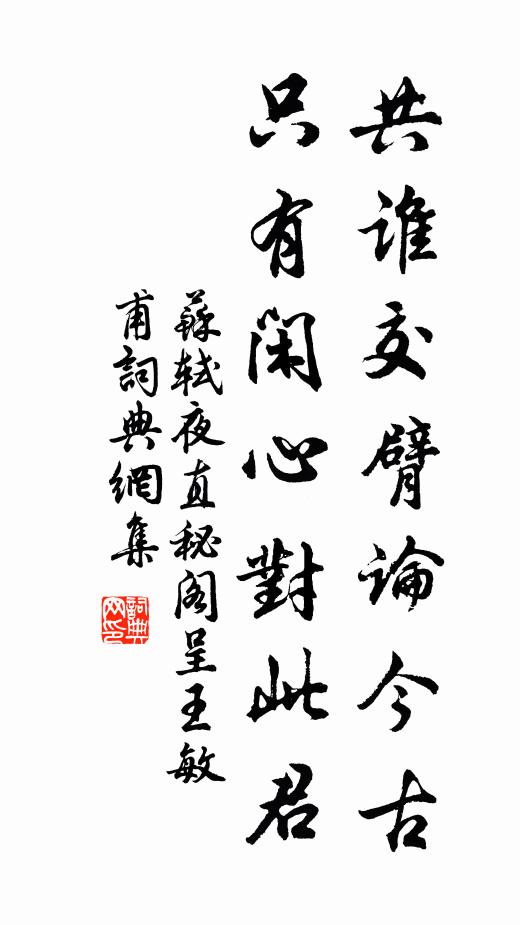 共誰交臂論今古
只有閑心對此君
蘇軾夜直秘閣呈王敏
甫詞典網集
詞典
网印